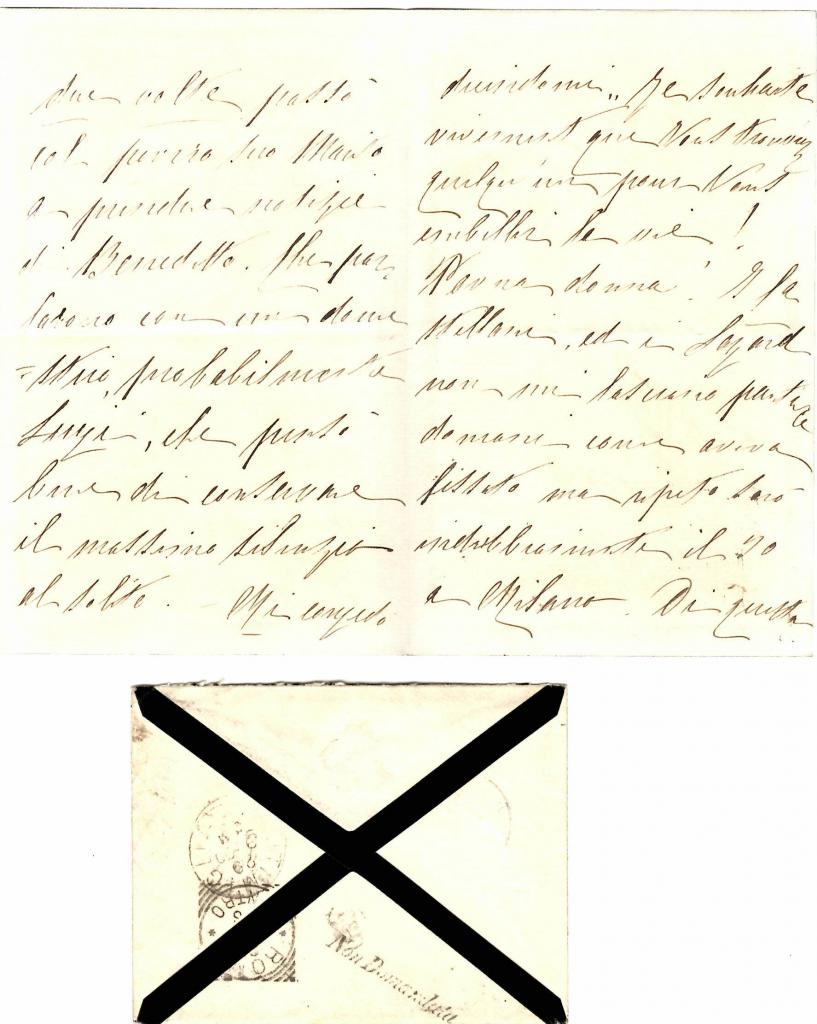 due volte passò
col povero suo Marito
a prendere notizie
di Benedetto. Che par=
larono con un dome
=stico, probabilmente
Luigi, che pensò
bene di conservare
il massimo silenzio
al solito. - Mi congedo
dicendomi „ Je souhaite
vivement que Vous trouviez
quelqu'un pour Vous
embellir la vie !
Povna donna! I
ed i
non mi lasciano partire
domani come aveva
fissato ma ripeto sarò
indubbiamente il 20
a Milano. Di questa
ROMA
CENTRO
Non Domandata